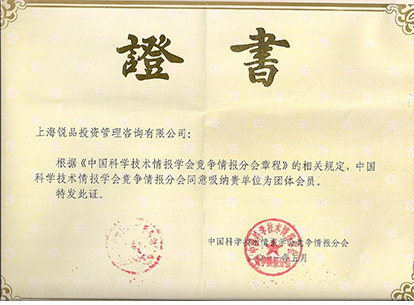 證書
上海锐品投资管理咨询有限公司：
根据《中国科学技术情报学会竞争情报分会章程》的相关规定，中国
科学技术情报学会竞争情报分会同意吸纳贵单位为团体会员。
特发此证。
中国科学技术情报学会竞争情报分会
年五月